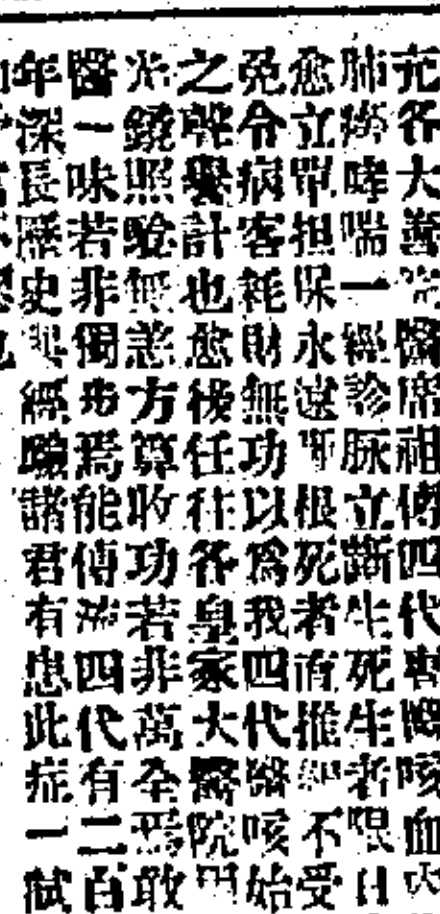 充各大善醫席祖傳四代專醫咳血
肺癆哮喘一經診脉立斷生死生者限日
愈立單担保永遠斷根死者直推卸不受
免令病客耗財無功以爲我四代醫咳始
之聲譽計也愈後任往各皇家大醫院用
光鏡照驗無恙方算收功若非萬全焉敢
醫一味若非獨步焉能傳流四代有二百
年深長歷史與經驗諸君有患此症一試